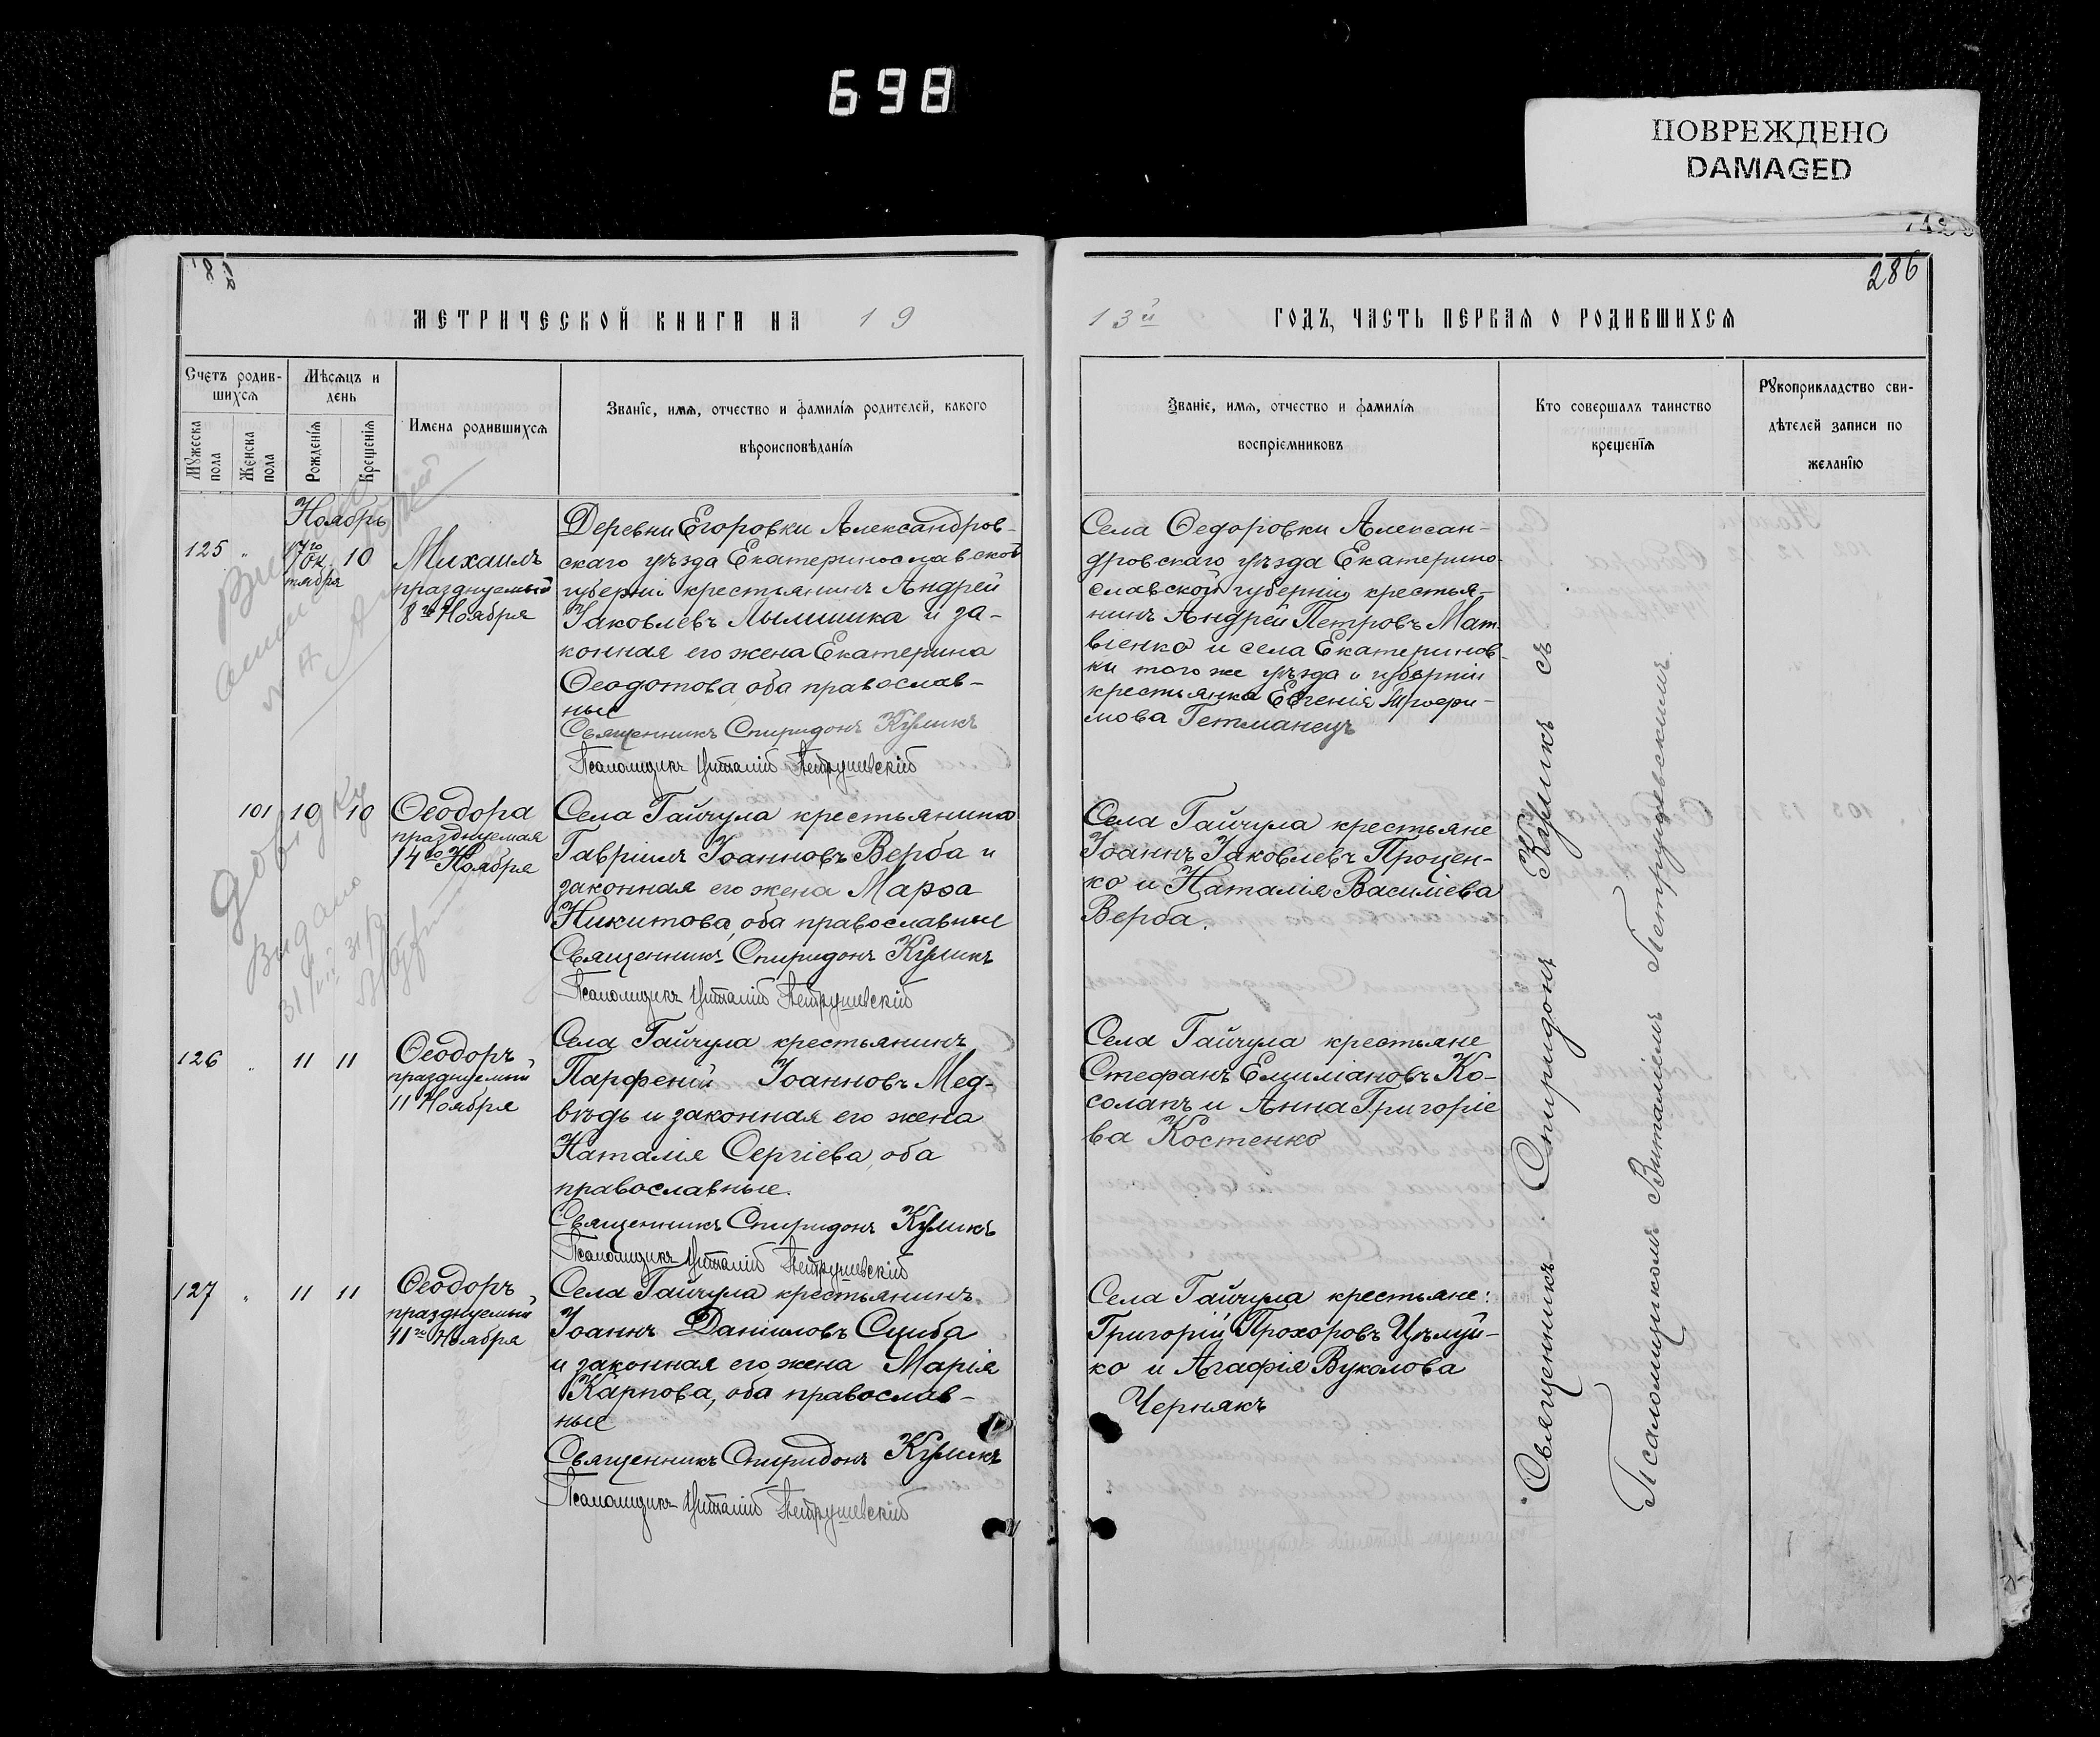 698
ПОВРЕЖДЕНО
DAMAGED
286
МЕТРИЧЕСКОЙ КНИГИ НА 19
13й ГОДЪ, ЧАСТЬ ПЕРВАЯ О РОДИВШИХСЯ
Счетъ родив-
шихся
Мужеска пола
Женска пола
Мѣсяцъ и
день
Рожденїя
Крещенїя
Имена родившихся
Званїе, имя, отчество и фамилїя родителей, какого
вѣроисповѣданїя
Званїе, имя, отчество и фамилїя
воспрїемниковъ
Кто совершалъ таинство
крещенїя
Рукоприкладство сви-
дѣтелей записи по
желанїю
Ноябрь
125 " 17го Ок- 10
тября
Михаилъ
празднуемый
8го Ноября
Деревни Егоровки Александров-
скаго уѣзда Екатеринославской
губерніи крестьянинъ Андрей
Іаковлевъ и за-
конная его жена Екатерина
Ѳеодотова, оба православ-
ные
Священникъ Спиридонъ Куликъ
Псаломщикъ Виталій Петрушевскій
Села Ѳедоровки Алексан-
дровскаго уѣзда Екатерино-
славской губерніи крестья-
нинъ Андрей Петровъ Мат
вѣенко и села Екатеринов-
ки того же уѣзда и губерніи
крестьянка Евгенія Трофи-
мова Гетманецъ
101 10 10
Ѳеодора
празднуемая
14го Ноября
Села Гайчула крестьянинъ
Гавріилъ Іоанновъ Верба и
законная его жена Марѳа
Никитова, оба православные
Священникъ Спиридонъ Куликъ
Псаломщикъ Виталій Петрушевскій
Села Гайчула крестьяне
Іоаннъ Іаковлевъ Процен-
ко и Наталія Василіева
Верба.
126 " 11 11
Ѳеодоръ,
празднуемый
11 Ноября
Села Гайчула крестьянинъ
Парфеній Іоанновъ Мед-
вѣдь и законная его жена
Наталія Сергіева, оба
православные.
Священникъ Спиридонъ Куликъ
Псаломщикъ Виталій Петрушевскій
Села Гайчула крестьяне
Стефанъ Емиліановъ Ко-
солапъ и Анна Григоріе
ва Костенко
127 " 11 11
Ѳеодоръ,
празднуемый
11го Ноября
Села Гайчула крестьянинъ
Іоаннъ Даніиловъ Сциба
и законная его жена Марія
Карпова, оба православ-
ные
Священникъ Спиридонъ Куликъ
Псаломщикъ Виталій Петрушевскій
Села Гайчула крестьяне:
Григорій Прохоровъ Цѣлуй-
ко и Агафія Вуколова
Чернякъ
Священникъ Спиридонъ Куликъ съ
Псаломщикомъ Виталіемъ Петрушевскимъ.
довідку
видано